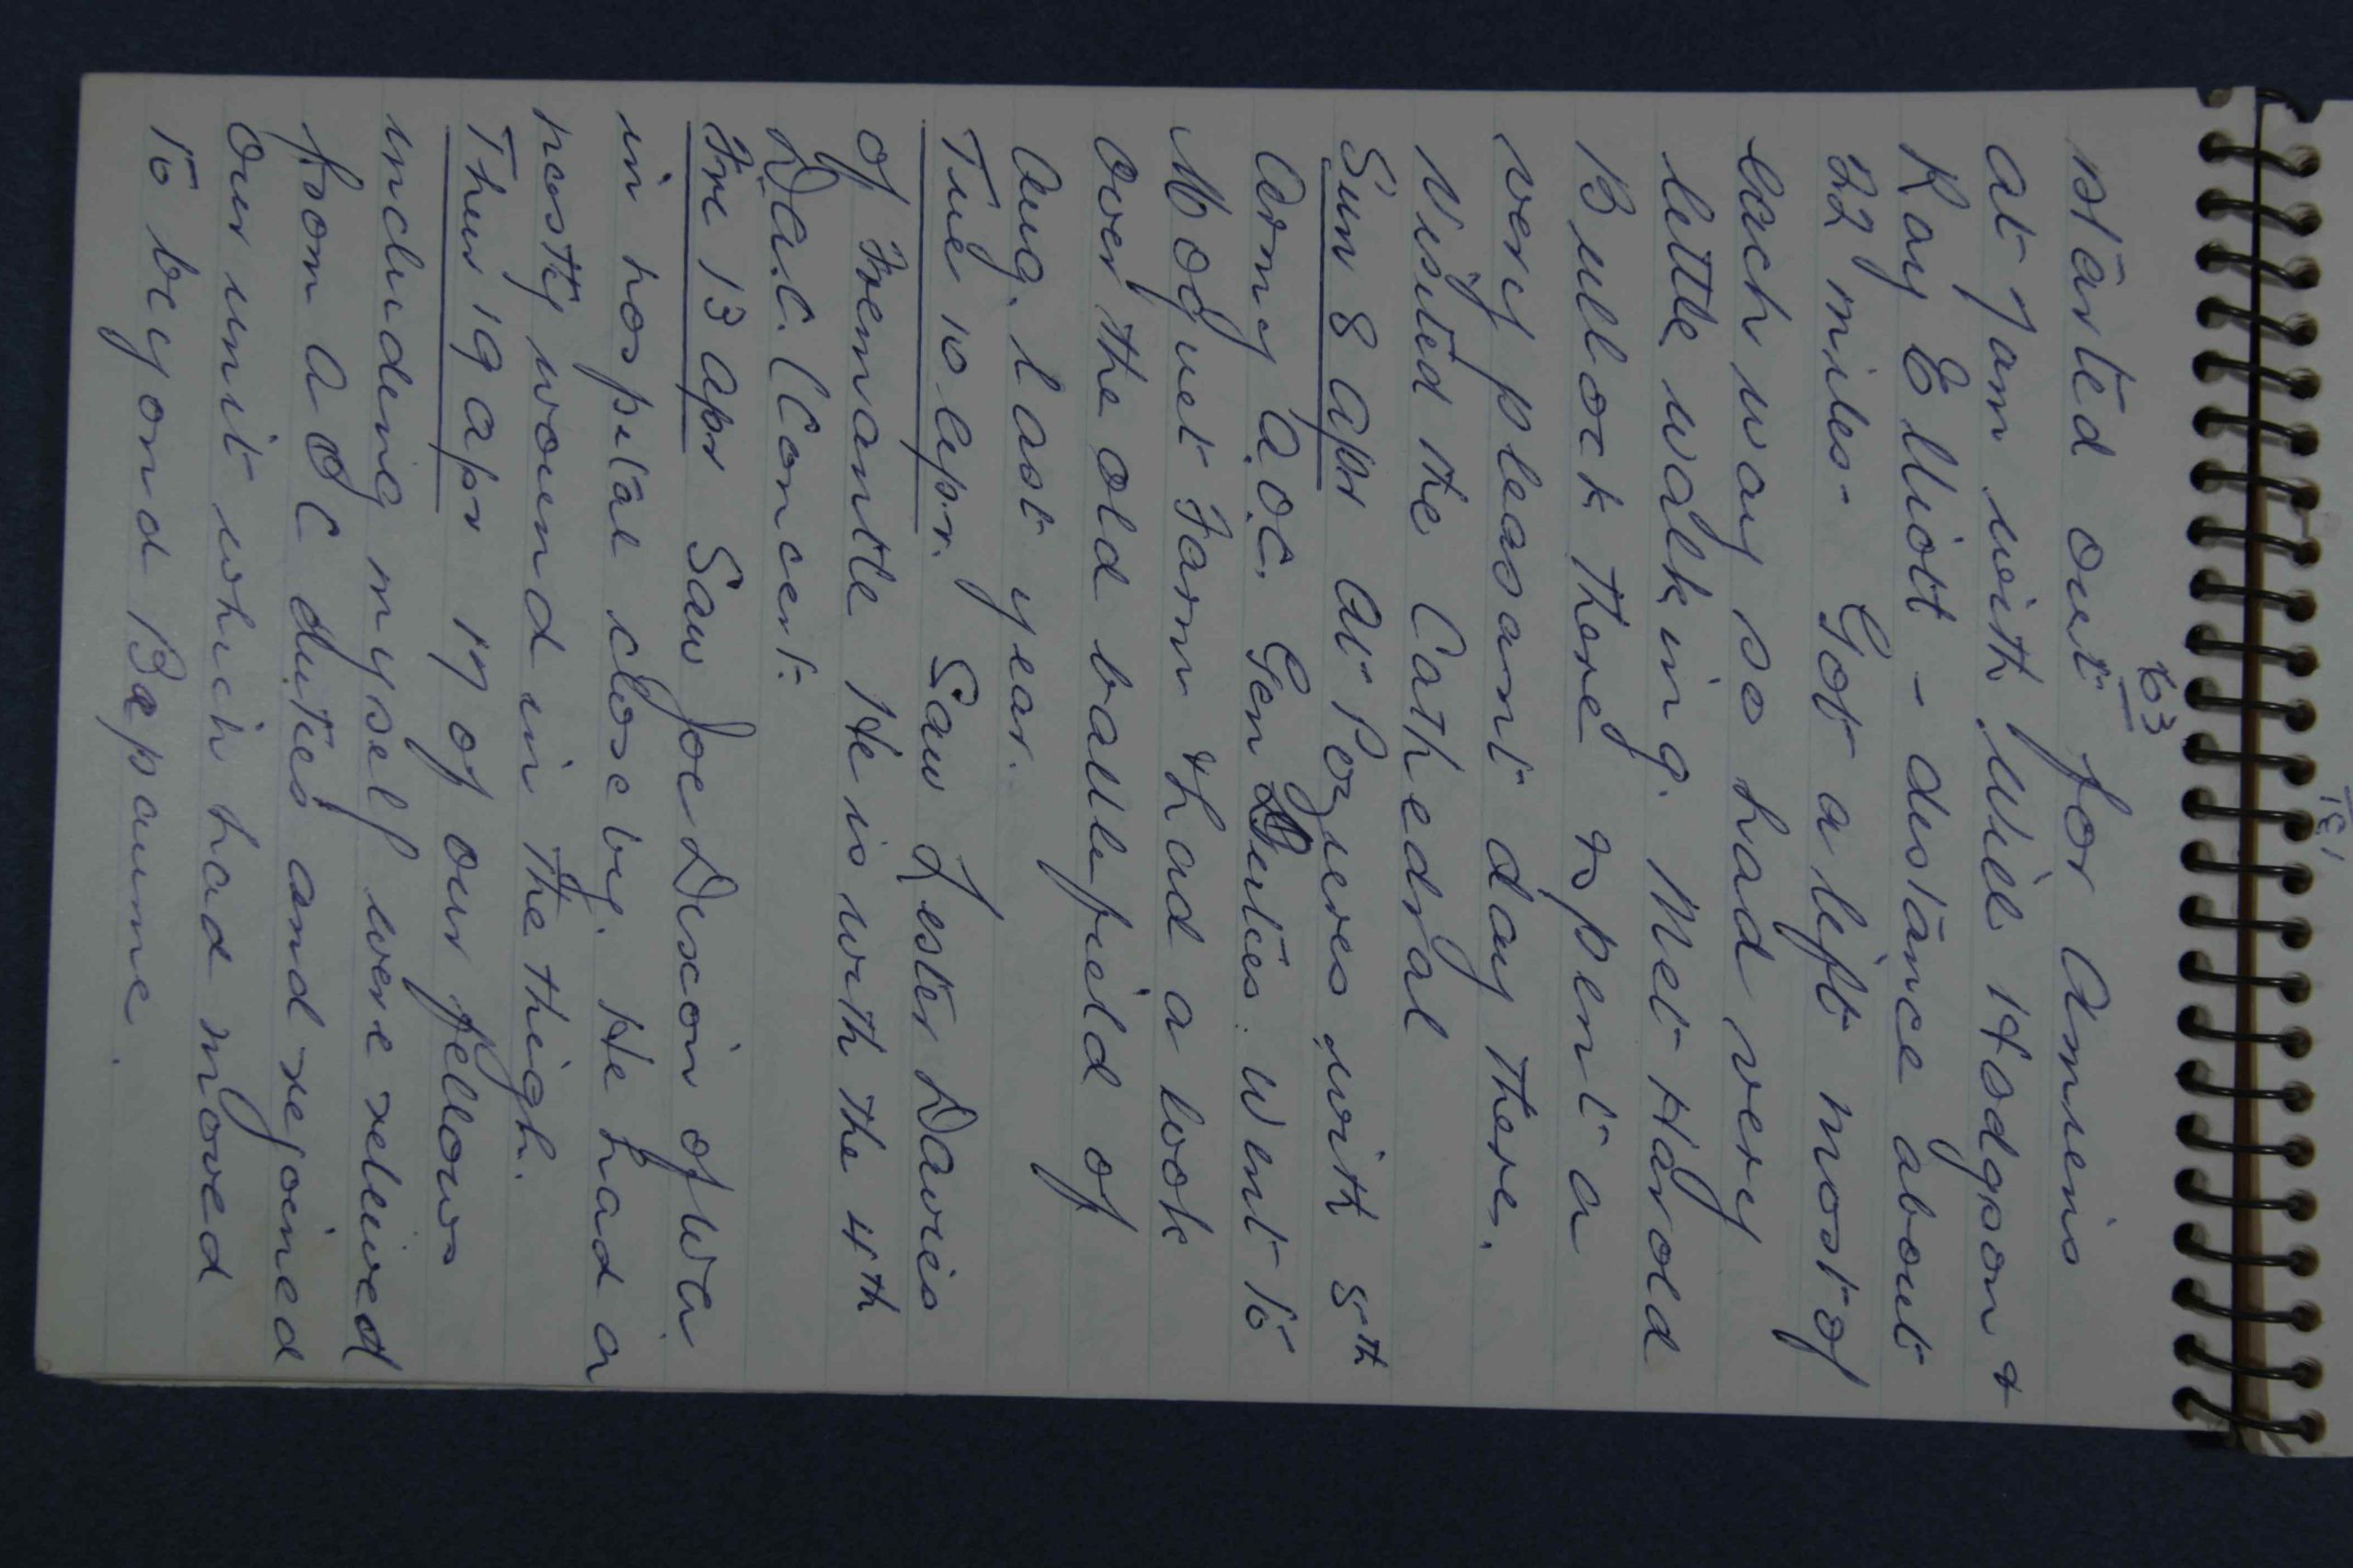 63
started out for Amiens
at 7am with Will Hodgson &
Ray Elliott - distance about
22 miles - Got a lift most of
each way so had very
little walking. Met Harold
Bullock there & spent a
very pleasant day there.
Visited the Cathedral
Sun 8 Apr At Pozieres with 5th
Army A.O.C. Gen Duties. Went to
Moquet Farm & had a look
over the old battlefield of
Aug. last year.
Tue 10 Apr. Saw Lester Davies
of Fremantle He is with the 4th
D.A.C. (Concert.
Fri 13 Apr Saw Joe Dixon of WA
in hospital close by. He had a
nasty wound in the thigh.
Thur 19 Apr 17 of our fellows
including myself were relieved
from A O C duties and rejoined
our unit which had moved
to beyond Bapaume.